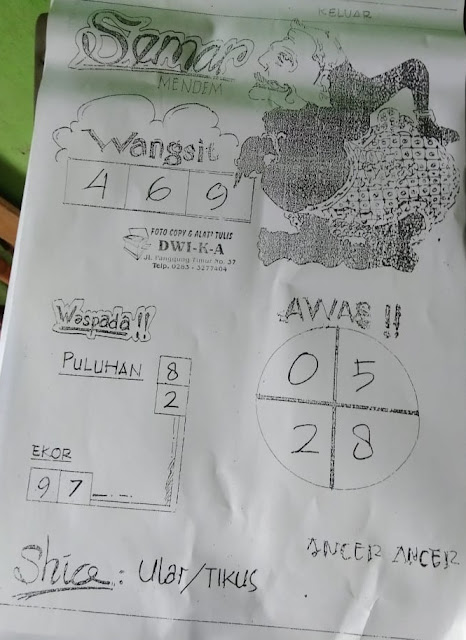 KELUAR
Semar
MENDEM
Wangsit
4 6 9
FOTO COPY & ALAT² TULIS
DWI-K-A
Jl. Panggung Timur No. 37
Telp. 0283 - 3277404
Waspada!!
AWAS !!
PULUHAN 8
2
0 5
2 8
EKOR
9 7
ANCER ANCER
Shio : Ular/TIKUS